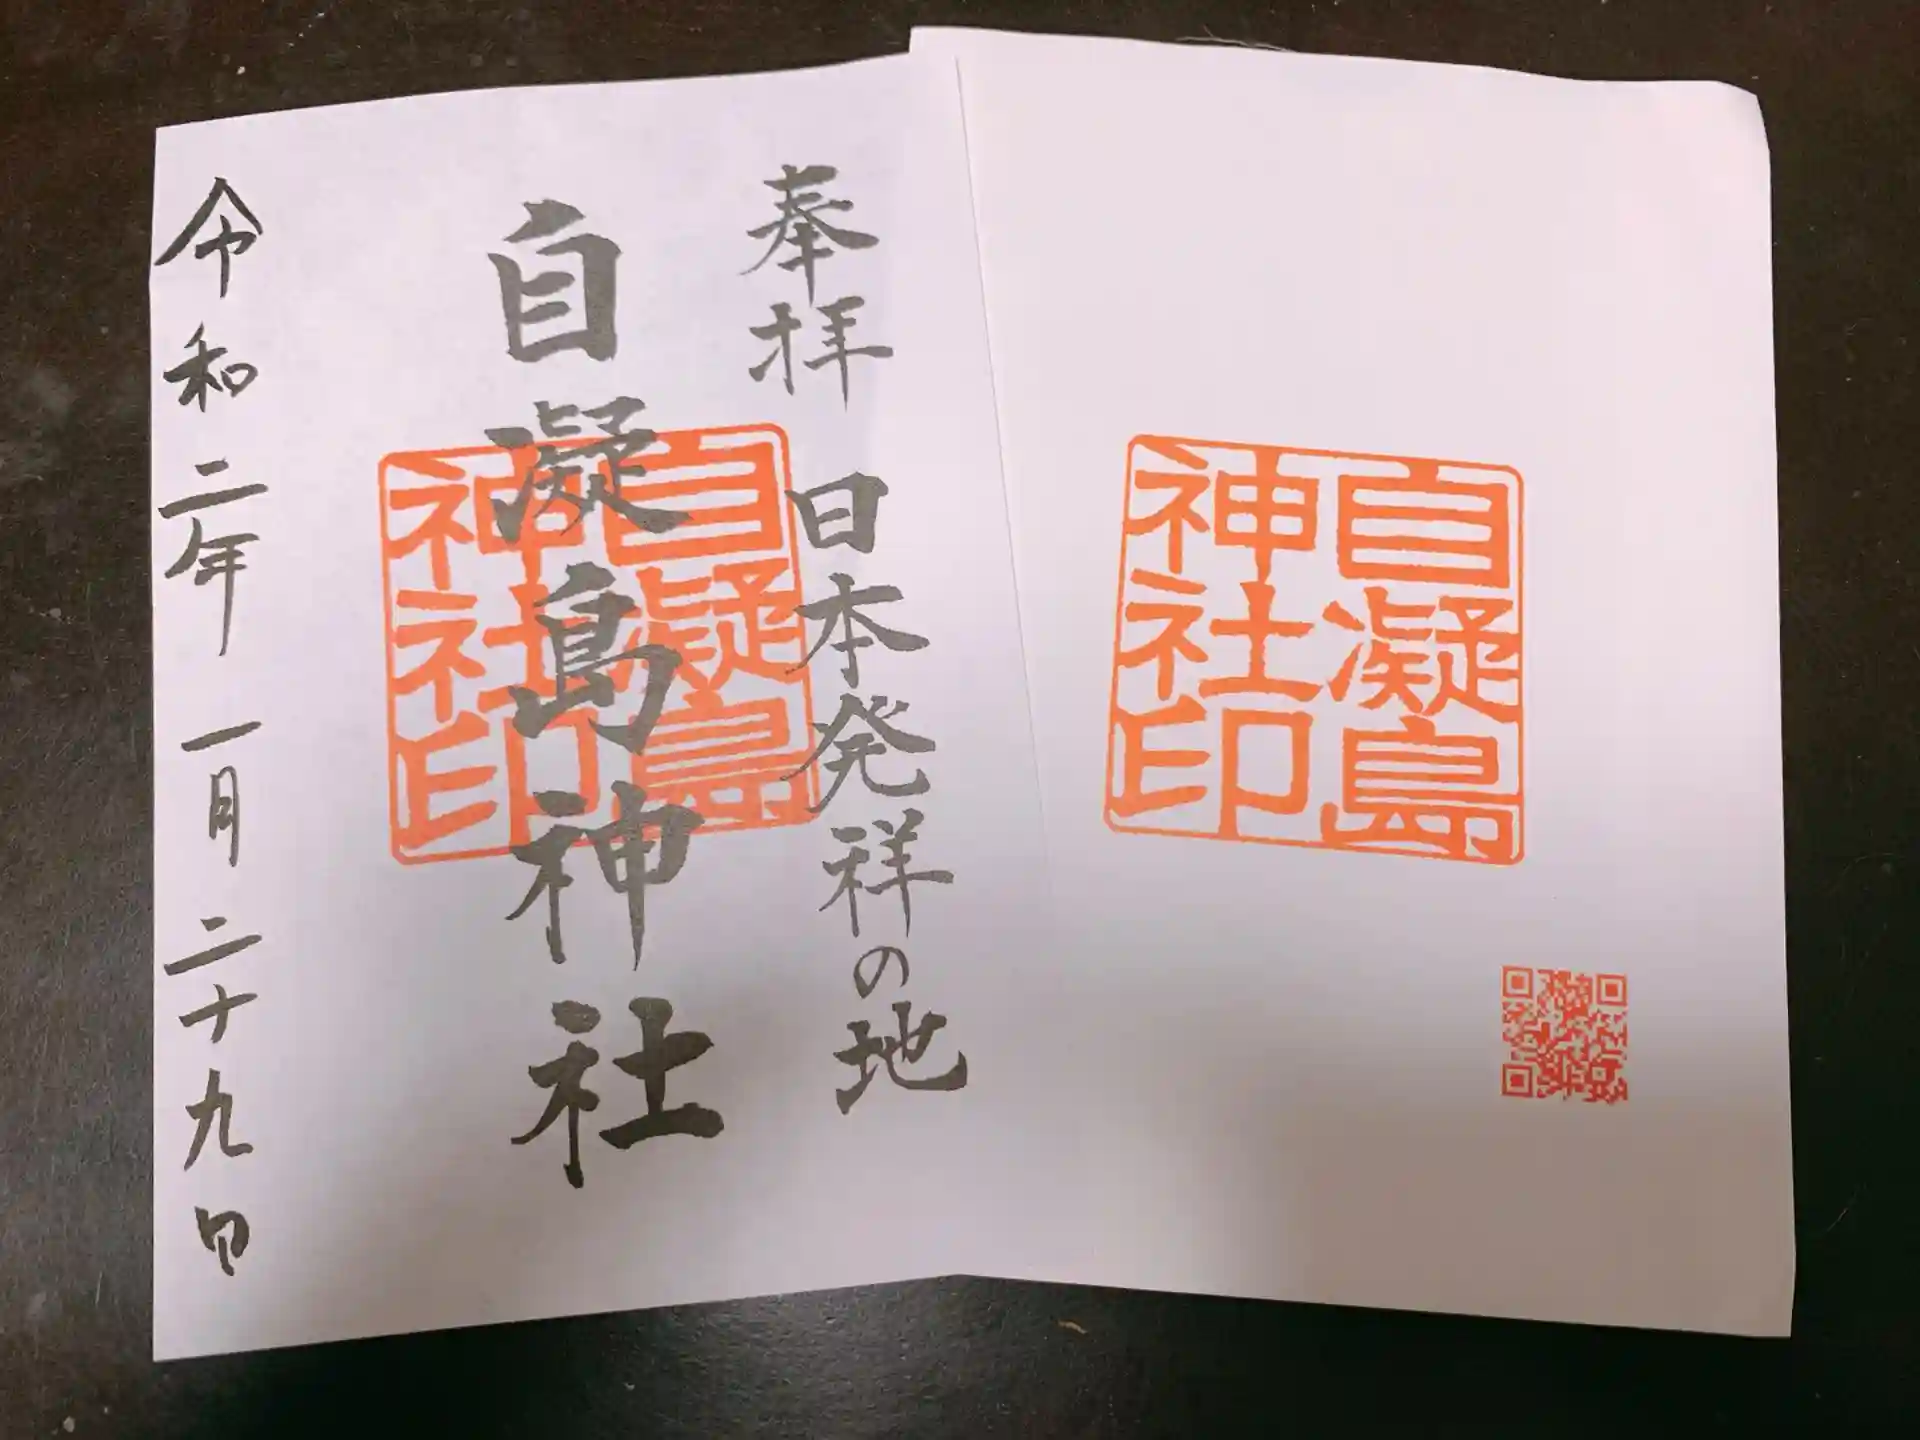 奉拝 日本発祥の地
自凝島神社
令和二年 一月二十九日
自凝島
神社印
自凝島
神社印